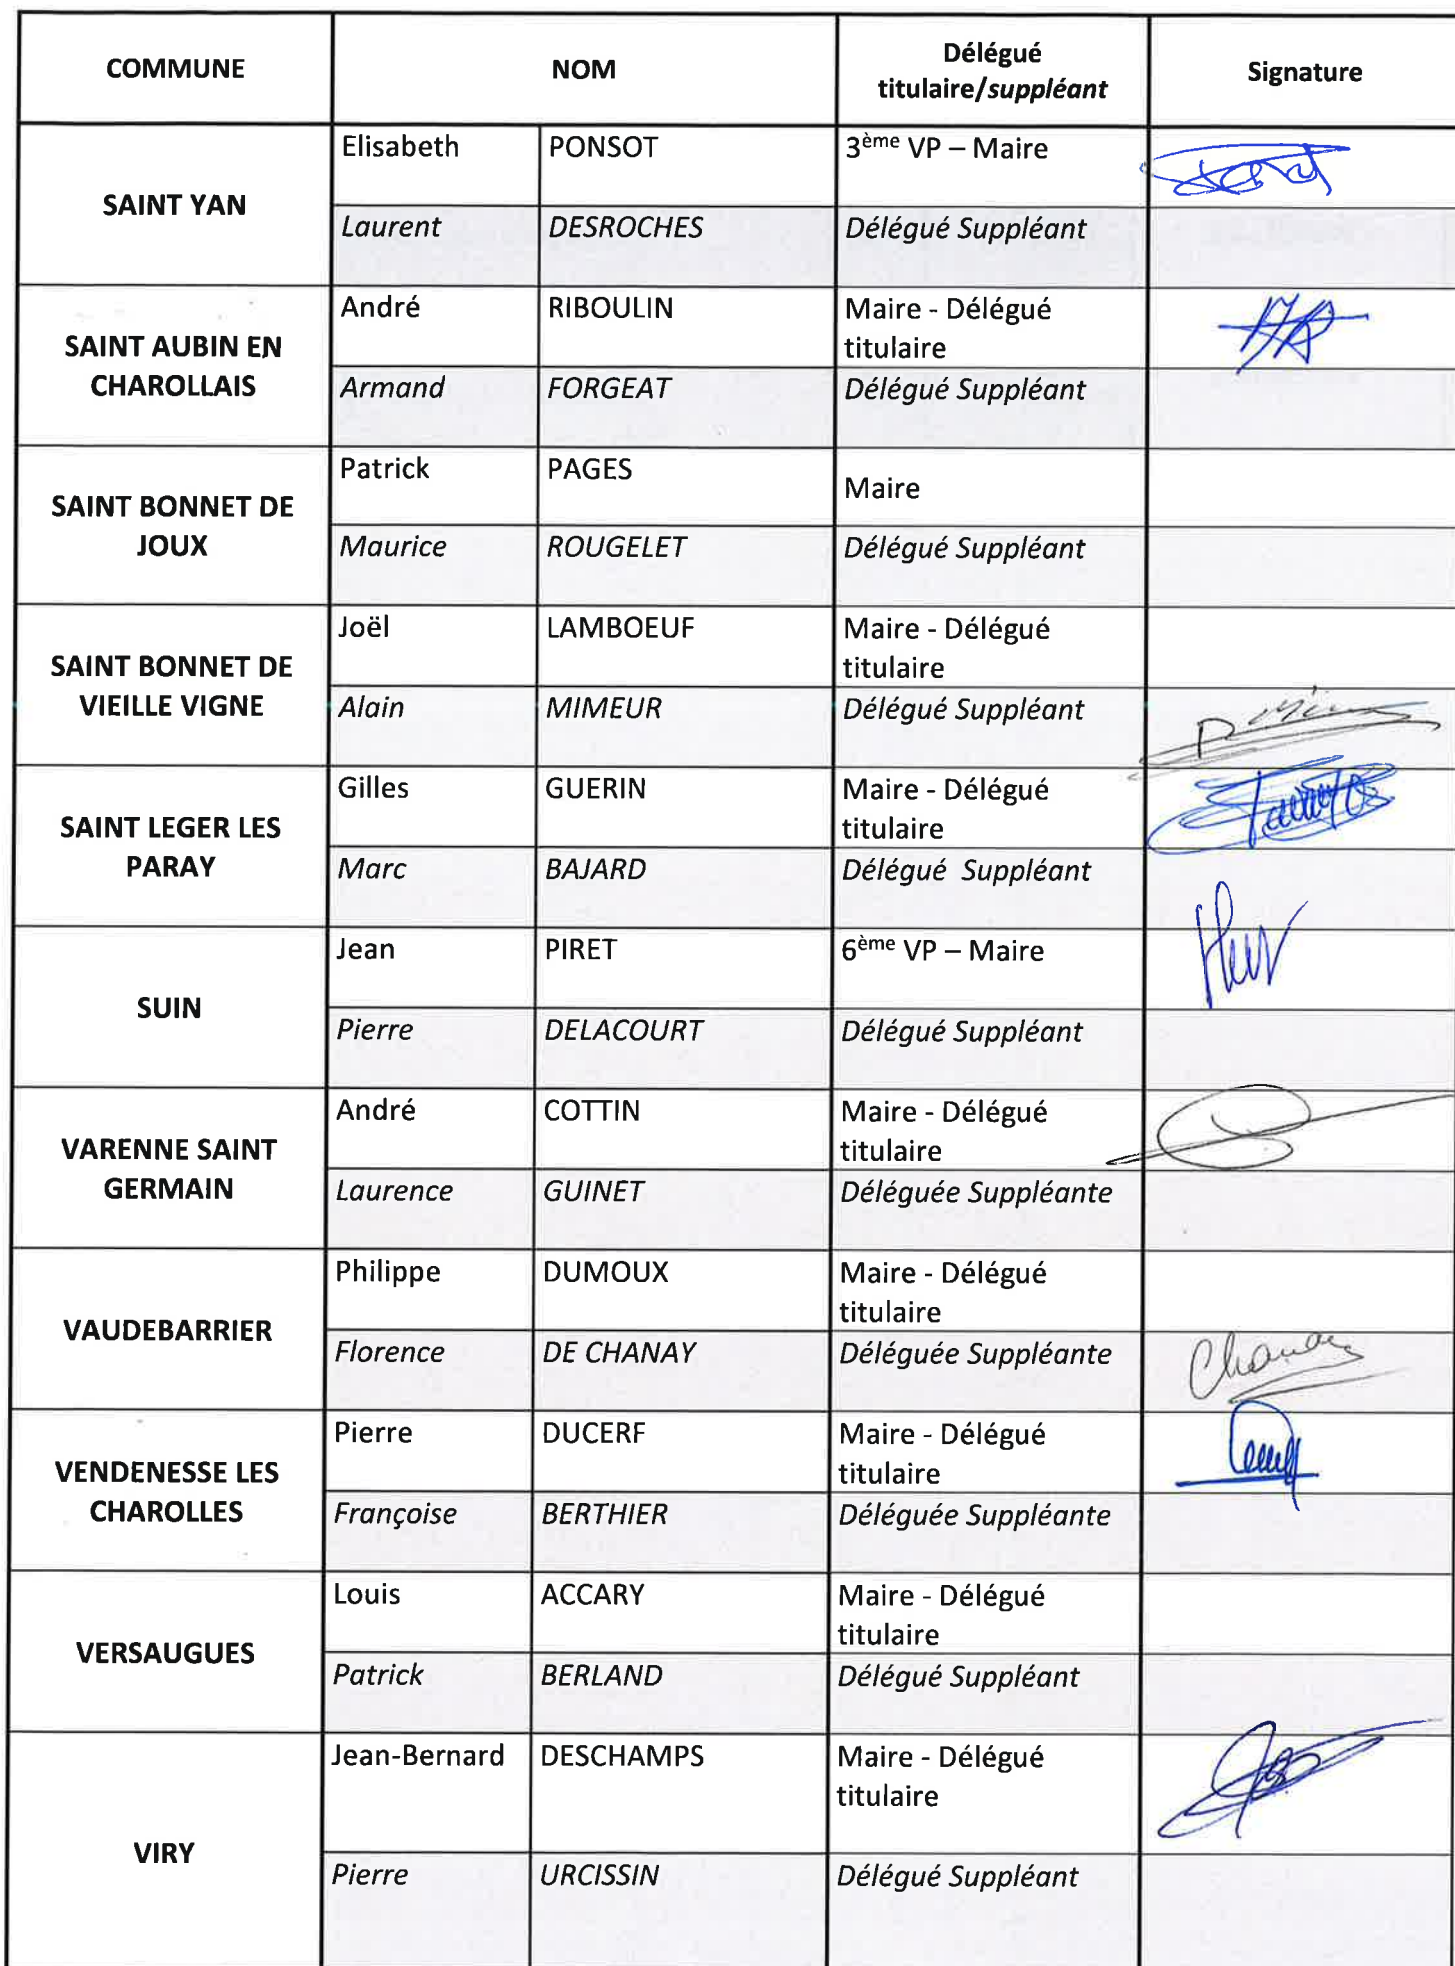 COMMUNE NOM Délégué titulaire/suppléant Signature
SAINT YAN
Elisabeth PONSOT 3ème VP – Maire
Laurent DESROCHES Délégué Suppléant
SAINT AUBIN EN
CHAROLLAIS
André RIBOULIN Maire - Délégué
titulaire
Armand FORGEAT Délégué Suppléant
SAINT BONNET DE
JOUX
Patrick PAGES Maire
Maurice ROUGELET Délégué Suppléant
SAINT BONNET DE
VIEILLE VIGNE
Joël LAMBOEUF Maire - Délégué
titulaire
Alain MIMEUR Délégué Suppléant
SAINT LEGER LES
PARAY
Gilles GUERIN Maire - Délégué
titulaire
Marc BAJARD Délégué Suppléant
SUIN
Jean PIRET 6ème VP – Maire
Pierre DELACOURT Délégué Suppléant
VARENNE SAINT
GERMAIN
André COTTIN Maire - Délégué
titulaire
Laurence GUINET Déléguée Suppléante
VAUDEBARRIER
Philippe DUMOUX Maire - Délégué
titulaire
Florence DE CHANAY Déléguée Suppléante
VENDENESSE LES
CHAROLLES
Pierre DUCERF Maire - Délégué
titulaire
Françoise BERTHIER Déléguée Suppléante
VERSAUGUES
Louis ACCARY Maire - Délégué
titulaire
Patrick BERLAND Délégué Suppléant
VIRY
Jean-Bernard DESCHAMPS Maire - Délégué
titulaire
Pierre URCISSIN Délégué Suppléant